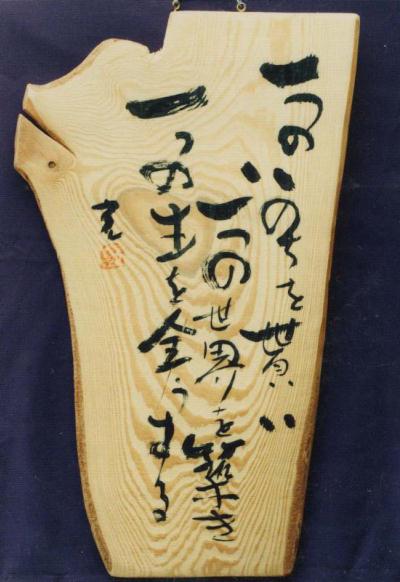 一つのいのちを貰い
一つの世界を築き
一つの生を全うする